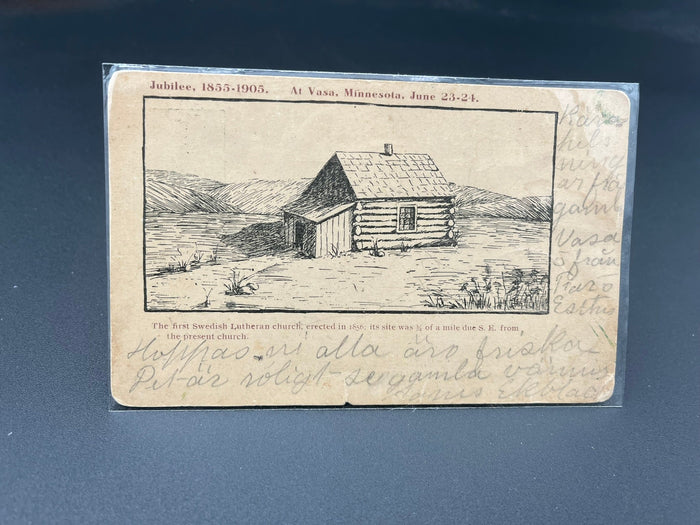 Jubilee, 1855-1905. At Vasa, Minnesota, June 23-24.
The first Swedish Lutheran church, erected in 1856; its site was ¾ of a mile due S. E. from
the present church.
Kära
hels
ning
ar frå
gaml
Vasa
o från
Esther
Hoppas ni alla äro friska
Det är roligt se gamla vänner
Ekblad